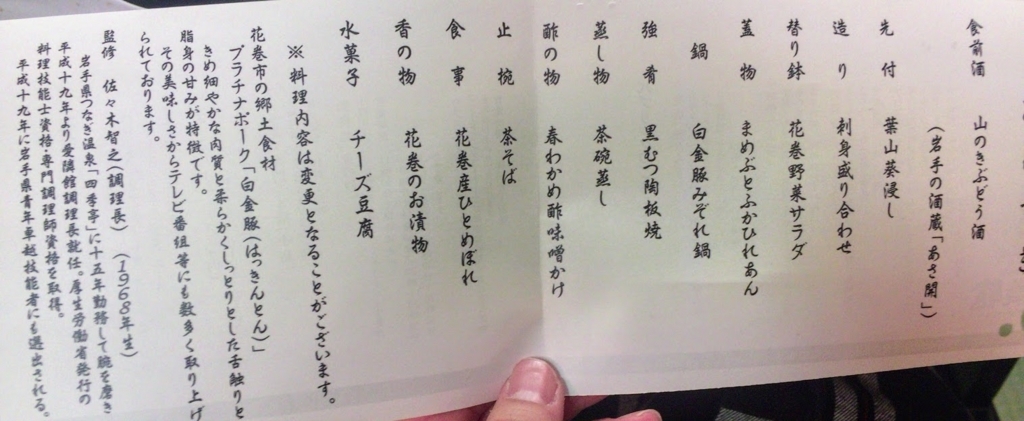 食前酒 山のきぶどう酒
(岩手の酒蔵「あさ開」)
先付 葉山葵浸し
造り 刺身盛り合わせ
替り鉢 花巻野菜サラダ
蓋物 まめぶとふかひれあん
鍋 白金豚みぞれ鍋
強肴 黒むつ陶板焼
蒸し物 茶碗蒸し
酢の物 春わかめ酢味噌かけ
止椀 茶そば
食事 花巻産ひとめぼれ
香の物 花巻のお漬物
水菓子 チーズ豆腐
※料理内容は変更となることがございます。
花巻市の郷土食材
プラチナポーク「白金豚(はっきんとん)」
きめ細やかな肉質と柔らかくしっとりとした舌触りと
脂身の甘みが特徴です。
その美味しさからテレビ番組等にも数多く取り上げ
られております。
監修 佐々木智之(調理長)(1968年生)
岩手県つなぎ温泉「四季亭」に十五年勤務して腕を磨き
平成十九年より愛隣館調理長就任。厚生労働省発行の
料理技能士資格・専門調理師資格を取得。
平成十九年に岩手県青年卓越技能者にも選出される。